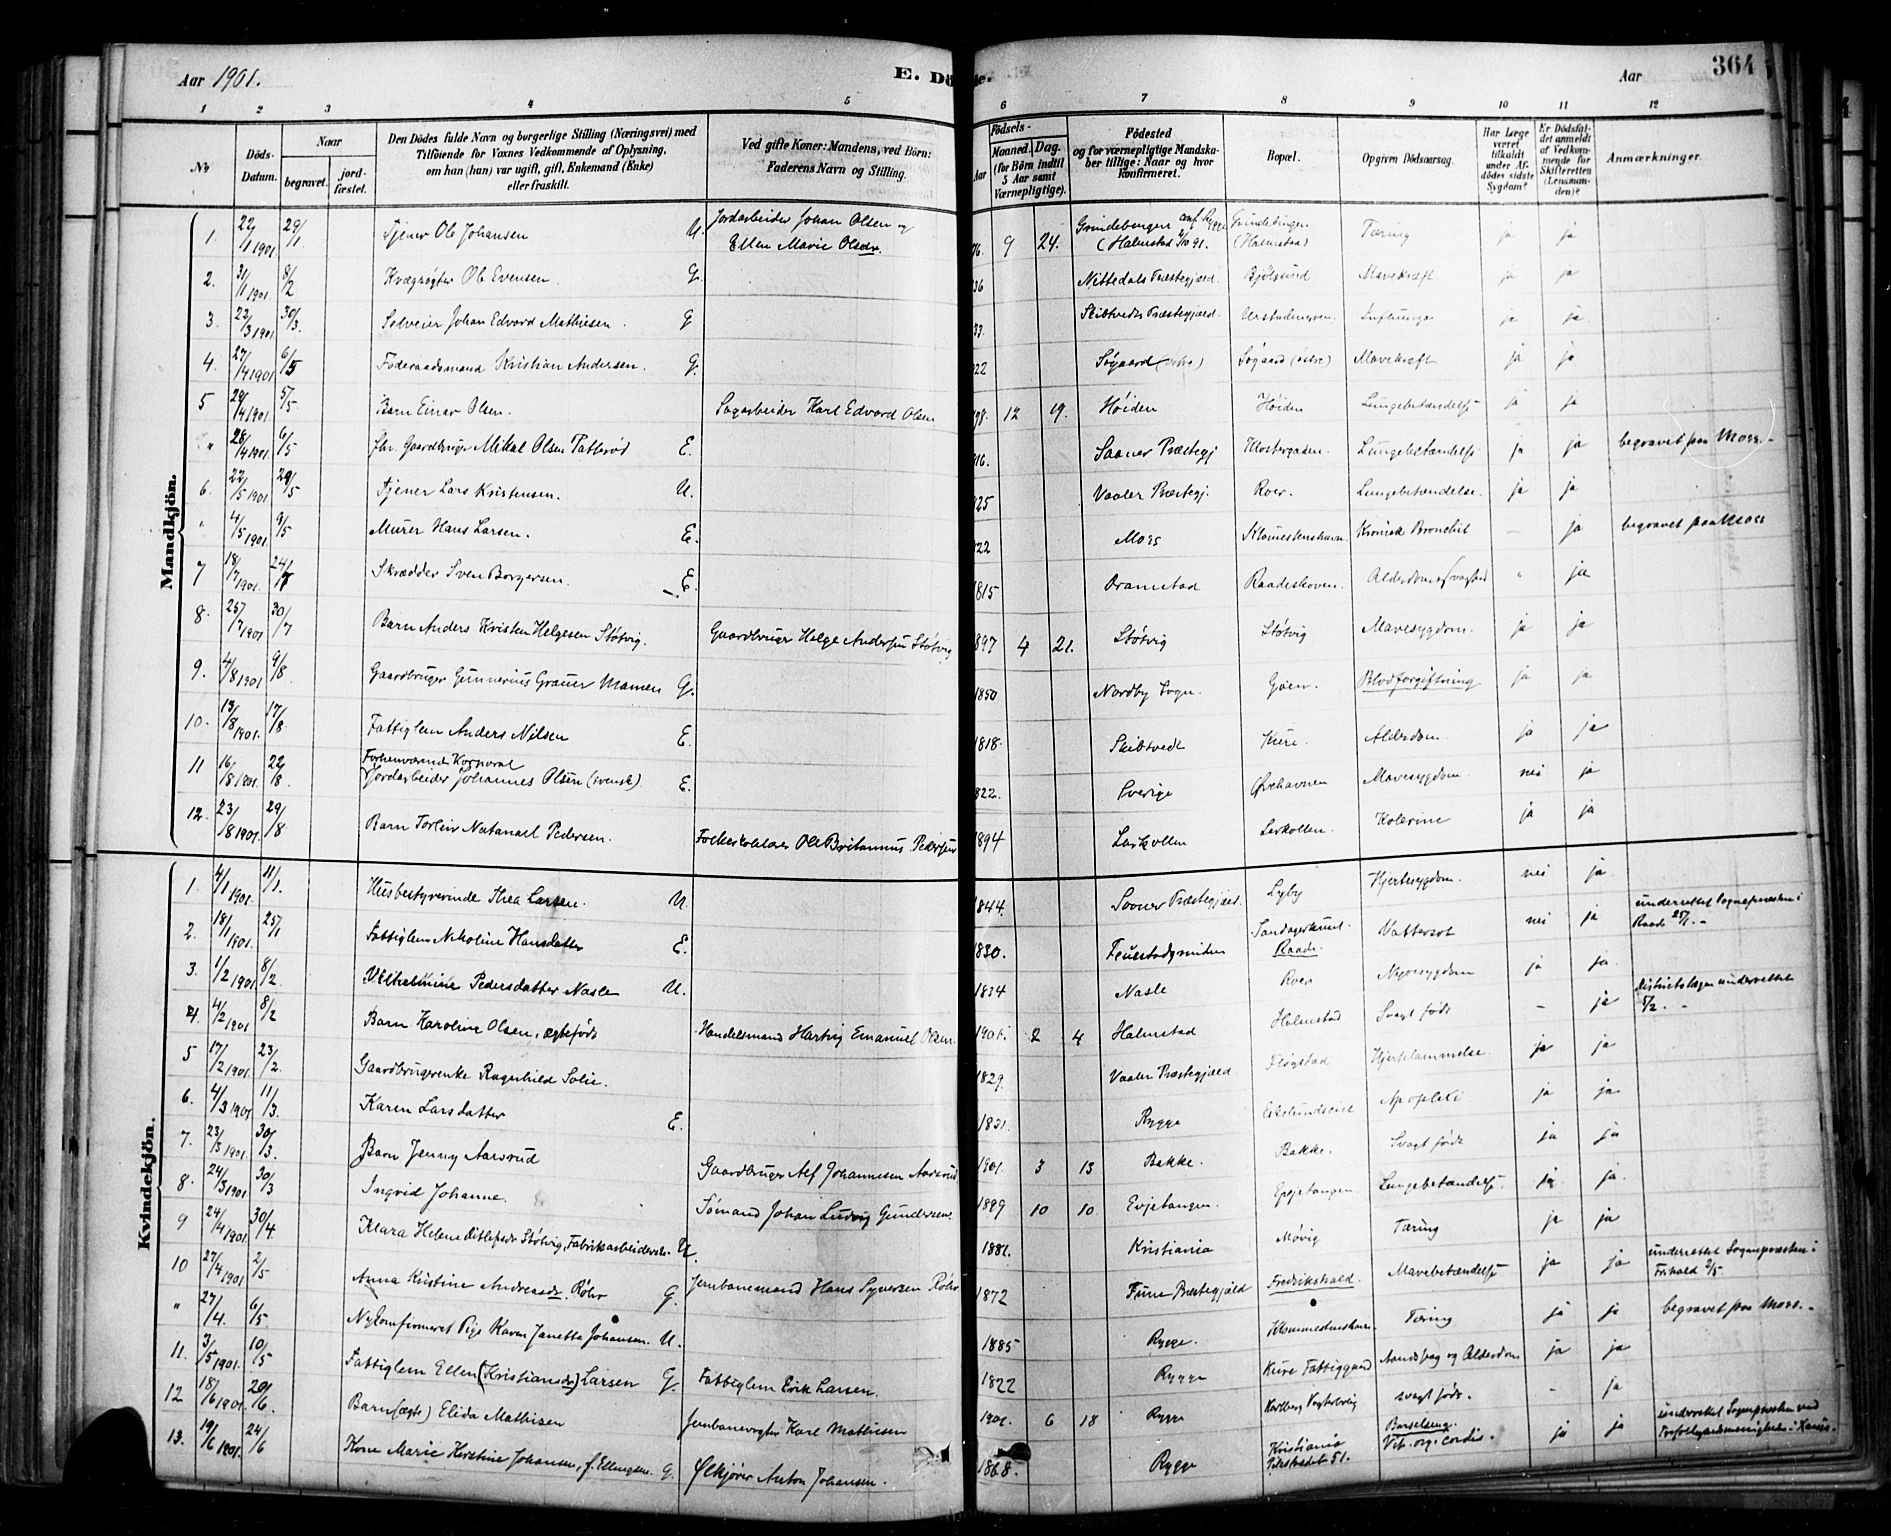 Aar 1901.
E. Dö
de.
Aar
364
1 2 3 4 5 6 7 8 9 10 11 12
No
Döds-Datum.
Naar
begravet.
jord-fæstet.
Den Dödes fulde Navn og borgerlige Stilling (Næringsvei) med
Tilföiende for Voxnes Vedkommende af Oplysning,
om han (hun) var ugift, gift, Enkemand (Enke)
eller fraskilt.
Ved gifte Koner: Mandens, ved Börn:
Faderens Navn og Stilling.
Födsels-
Aar
Maaned. Dag.
(for Börn indtil
5 Aar samt
Værnepligtige).
Födested
og for værnepligtige Mandska-
ber tillige: Naar og hvor
konfirmeret.
Bopæl.
Opgiven Dödsaarsag.
Har Læge
været
tilkaldt
under Af-
dödes sidste
Sygdom?
Er Dödsfal-
det anmeldt
af Vedkom-
mende for
Skifteretten
(Lensman-
den)?
Anmærkninger.
Mandkjön.
1. 22/1 1901 29/1 Tjener Ole Johansen U. Jordarbeider Johan Olsen og Ellen Marie Olsdr. 76. 9 24. Grindebergen (Halmstad) conf. Rygge 91. (Halmstad) Tæring ja ja
2. 31/1 1901 8/2 Kvægrøgter Ole Evensen G. 36 Nittedals Præstegjæld. Bjølsund Mavekræft ja ja
3. 22/3 1901 30/3 Selveier Johan Edvard Mathisen. G 33. Skibtvedts Præstegjæld. Influenza ja ja
4. 27/4 1901 6/5 Føderaadsmand Kristian Andersen. G. 22 Søgaard Søgaard (østre) Mavekræft ja ja
5 29/4 1901. 5/5. Barn Einar Olsen. Sagarbeider Karl Edvard Olsen 98. 12 19. Høiden Høiden Lungebetændelse ja ja
" 28/4 1901. 6/5 fhv. Gaardbruger Mikal Olsen Patterød E. 16. Saaner Præstegj Klostergaden. Lungebetændelse ja ja begravet paa Moss.-
6. 22/5 1901 29/5 Tjener Lars Kristensen. U. 25 Vaaler Præstegj. Roer. Lungebetændelse. ja ja
" 4/5 1901. 9/5 Murer Hans Larsen. E. 22 Moss Kronisk Bronchit — ja begravet paa Moss
7 18/7 1901. 24/7 Skrædder Sven Borgersen. E. 1815 Dramstad Raadeskoven. Alderdomssvaghed " ja
8. 25/7 1901 30/7 Barn Anders Kristen Helgesen Støtvig. Gaardbruger Helge Andersen Støtvig 897 4 21. Støtvig Støtvig Mavesygdom. ja ja
9. 4/8 1901 9/8 Gaardbruger Gunnerius Grauer Mamen G. 1850 Nordby Sogn. Gøen. Blodforgiftning ja ja
10. 13/8 1901. 17/8 Fattiglem Anders Nilsen E. 1818. Skibtvedt Kure. Alderdom. ja ja
11 16/8 1901. 22/8. Forhenværende Korporal Jordarbeider Johannes Olsen (svensk). E. 822. Sverige Ørehavnen Mavesygdom. nei ja
12. 23/8 1901. 29/8 Barn Torleiv Natanael Pedersen. Folkeskolelærer Ole Britannus Pedersen 1894 Larkollen Larkollen. Kolerine ja ja
Kvindekjön.
1. 4/1 1901. 11/1. Husbestyrerinde Thea Larsen. U. 1844. Sooner Præstegjæld. Lyby Hjertesygdom. nei ja.
2. 18/1 1901. 25/1 Fattiglem Nikoline Hansdatter E. 1830. Raade. Vattersot nei ja underrettet Sognepræsten i Raade 25/1.-
3. 1/2 1901 8/2 Vilhelmine Pedersdatter Nasle U. 1834 Nasle Roer Nyresygdom ja ja.
4. 4/2 1901 8/2 Barn Karoline Olsen, ægtefødt Handelsmand Hartvig Emanuel Olsen. 1901. 2 4 Halmstad Halmstad Svagt født — ja Distriktslægen underrettet 5/2.-
5 17/2 1901. 23/2. Gaardbrugerenke Ragnhild Solie. 1829. Vaaler Præstegjæld. Hjertelammelse. ja ja
6. 4/3 1901 11/3. Karen Larsdatter E. 1831. Rygge Apoplexi ja ja
7. 23/3 1901. 30/3. Barn Jenny Aarsrud Gaardbruger Alf Johannesen Aarsrud 1901. 3 13 Bakke. Bakke. Svagt født ja ja
8. 24/3 1901. 30/3 Ingvid Johanne. Sømand Johan Ludvig Gundersen. 1899 10 10 Evjetangen. Evjetangen. Lungebetændelse. ja ja.
9 24/4 1901. 30/4 Klara Helene Ditlefsdr Støtvig, Fabrikarbeiderske. U. 1881. Kristiania Møvig Tæring ja ja
10 27/4 1901 2/5 Anna Kristine Andreasdr. Röhr G. Jernbanemand Hans Syversen Röhr 1872 Præstegjæld Fredrikshald. Mavebetændelse ja ja underrettet Sognepræsten i Frhald 2/5
" 27/4. 6/5. Nykonfirmeret Pige Karen Janetta Johansen. U. 1885 Rygge. Tæring ja ja begravet paa Moss.-
11. 3/5 1901. 10/5 Fattiglem Ellen (Kristiansdr) Larsen G. Fattiglem Erik Larsen. 1822 Rygge Kure Fattiggaard og Alderdom ja ja
12 18/6 1901. 20/6. Barn (ægte) Elida Mathisen Jernbanevogter Karl Mathisen 1901. 6 18 Rygge Vogterbolig svagt født. — ja
13. 19/6 1901. 24/6 Kone Marie Kerstine Johansen, f. Ellingsen. G. Ølkjører Anton Johansen. 1868. Rygge Kristiania 51. Barselseng. Vit. org. cordis. ja ja underrettet Sognepresten ved